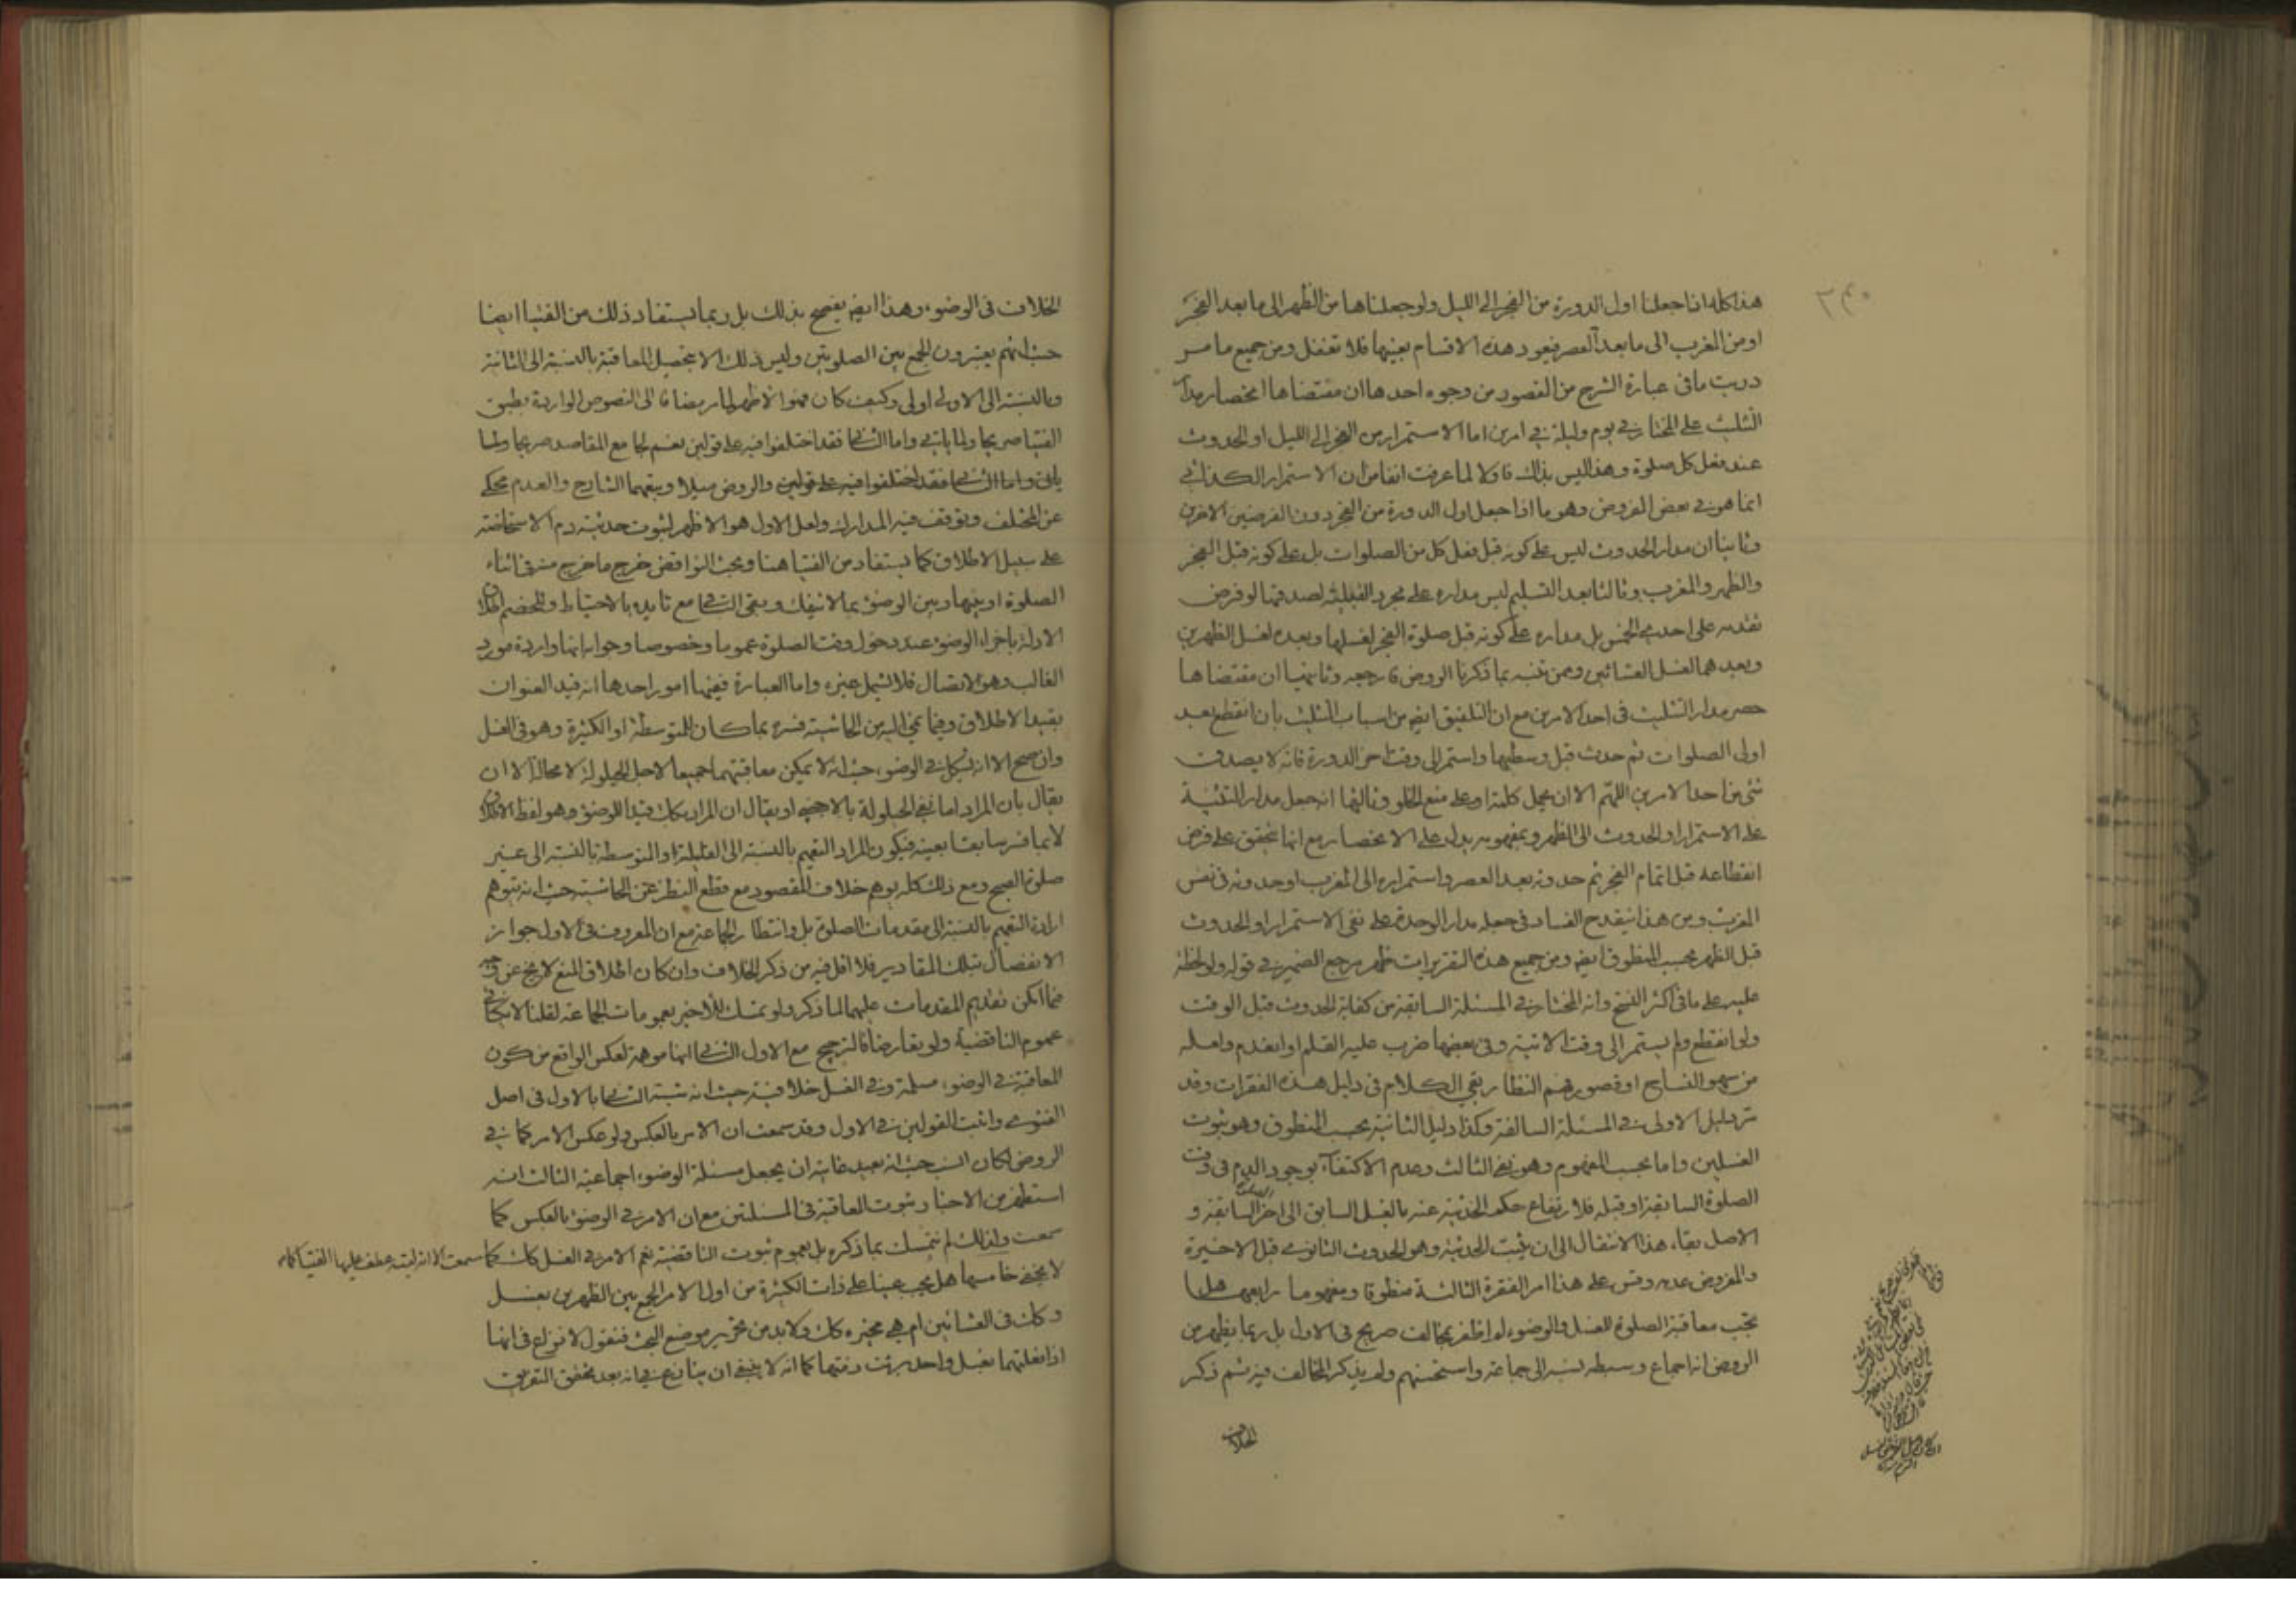 هذا كله اذا جعلنا اول الدورة من الفجر الى الليل ولو جعلناها من الظهر الى ما بعد الفجر
او من المغرب الى ما بعد العصر فيعود هذه الاقسام بعينها فلا تغفل ومن جميع ما مر
دريت ما فى عبارة الشرح من القصور من وجوه احدها ان مقتضاها انحصار مدار
التثليث على المختار فى يوم وليلة فى امرين اما الاستمرار من الفجر الى الليل او الحدوث
عند فعل كل صلوة وهذا ليس بذاك فاولا لما عرفت انفا من ان الاستمرار الكذائى
انما هو فى بعض الفروض وهو ما اذا جعل اول الدورة من الفجر دون الفرضين الاخرين
وثانيا ان مدار الحدوث ليس على كونه قبل فعل كل من الصلوات بل على كونه قبل الفجر
والظهر والمغرب وثالثا بعد التسليم ليس مداره على مجرد القبلية لصدقها لو فرض
تقدمه على احدى الخمس بل مداره على كونه قبل صلوة الفجر لغسلها وبعده لغسل الظهرين
وبعدهما لغسل العشائين وممن تنبه بما ذكرنا الروض فارجعه وثانيها ان مقتضاها
حصر مدار التثليث فى احد الامرين مع ان التلفيق ايضا من اسباب التثليث بان انقطع بعد
اولى الصلوات ثم حدث قبل وسطيها واستمر الى وقت اخر الدورة فانه لا يصدق
شئ من احد الامرين اللهم الا ان يحمل كلمة او على منع الخلو وثالثها انه جعل مدار التثنية
على الاستمرار او الحدوث الى الظهر وبمفهومه يدل على الانحصار مع انها تتحقق على فرض
انقطاعه قبل اتمام الفجر ثم حدوثه بعد العصر واستمراره الى المغرب او حدوثه فى نفس
المغرب ومن هذا ينقدح الفساد فى جعله مدار الوحدة على نفى الاستمرار او الحدوث
قبل الظهر بحسب المنطوق ايضا ومن جميع هذه التقريرات ظهر مرجع الضمير فى قوله ولو لحظة
عليه على ما فى اكثر النسخ وانه المختار فى المسئلة السابقة من كفاية الحدوث قبل الوقت
ولو انقطع ولم يستمر الى وقت الاتية وفى بعضها ضرب عليه القلم او انعدم ولعله
من سهو النساخ او قصور فهم النظار بقى الكلام فى دليل هذه الفقرات وقد
مر دليل الاولى فى المسئلة السالفة وكذا دليل الثانية بحسب المنطوق وهو ثبوت
الغسلين واما بحسب المفهوم وهو نفى الثالث وعدم الاكتفاء بوجود الدم فى وقت
الصلوة السابقة او قبله فلارتفاع حكم الحدثية عنه بالغسل السابق الى اخر السابقة و
الاصل بقاء هذا الانتقال الى ان يثبت الحدثية وهو الحدوث الثانوى قبل الاخيرة
والمفروض عدمه وقس على هذا امر الفقرة الثالثة منطوقا ومفهوما رابعها هل
يجب معاقبة الصلوة للغسل والوضوء لم اظفر بمخالف صريح فى الاول بل ربما يظهر من
الروض انه اجماع وسبطه نسبه الى جماعة واستحسنهم ولم يذكر المخالف فيه ثم ذكر
الخلاف
الخلاف فى الوضوء وهذا ايضا يفصح بذلك بل ربما يستفاد ذلك من الفتيا ايضا
حيث انهم يعتبرون الجمع بين الصلوتين وليس ذلك الا لتحصيل المعاقبة بالنسبة الى الثانية
وبالنسبة الى الاولى اولى وكيف كان فهو الاظهر لما مر مضافا الى النصوص الواردة بطبق
الفتيا صريحا ولما ياتى واما الثانى فقد اختلفوا فيه على قولين نعم لجامع المقاصد صريحا ولما
ياتى واما الثانى فقد اختلفوا فيه على قولين والروض ميلا وتبعهما الشارح والعدم محكى
عن المختلف وتوقف فيه المدارك ولعل الاول هو الاظهر لثبوت حدثية دم الاستحاضة
على سبيل الاطلاق كما يستفاد من الفتيا هنا وبحث النواقض خرج ما خرج منه فى اثناء
الصلوة او بينها وبين الوضوء بما لا ينفك وبقى الثانى مع تاييده بالاحتياط وللخصم اطلاق
الادلة باجزاء الوضوء عند دخول وقت الصلوة عموما وخصوصا وجوابه انها واردة مورد
الغالب وهو الاتصال فلا تشمل غيره واما العبارة ففيها امور احدها انه قيد العنوان
بقيد الاطلاق وفيما نمى اليه من الحاشية فسره بما كان للمتوسطة او الكثيرة وهو فى الغسل
وان صح الا انه يشكل فى الوضوء حيث انه لا يمكن معاقبتهما جميعا لاجل الحيلولة لا محالة الا ان
يقال بان المراد اما نفى الحيلولة بالاجنبى او يقال ان المراد بكاف قيد الوضوء وهو لفظ الاطلاق
لا بما فسر سابقا بعينه فيكون المراد التعميم بالنسبة الى القليلة او المتوسطة بالنسبة الى غير
صلوة الصبح ومع ذلك كله يوهم خلاف المقصود مع قطع النظر عن الحاشية حيث انه يتوهم
ارادة التعميم بالنسبة الى مقدمات الصلوة بل وانتظار الجماعة مع ان المعروف فى الاول جواز
الانفصال بتلك المقادير فلا اقل فيه من ذكر الخلاف وان كان اطلاق المنع لا يخ عن وجه
فما امكن تقديم المقدمات عليهما لما ذكر ولو تمسك للاخير بعمومات الجماعة لقلنا لا
عموم الناقضية ولو تعارضا فالترجيح مع الاول الثانى انها موهمة لعكس الواقع من كون
المعاقبة فى الوضوء مسلمة وفى الغسل خلافية حيث انه شبه الثانى بالاول فى اصل
الفتوى واثبت القولين فى الاول وقد سمعت ان الامر بالعكس ولو عكس الامر كما فى
الروض لكان انسب حيث انه بعيد غايته ان يجعل مسئلة الوضوء اجماعية الثالث انه
استظهر من الاخبار ثبوت المعاقبة فى المسئلتين مع ان الامر فى الوضوء بالعكس كما
سمعت ولذلك لم نتمسك بما ذكره بل بعموم ثبوت الناقضية نعم الامر فى الغسل كك كما سمعت الا انه لم عطف عليها الفتيا كما
لا يخفى خامسها هل يجب عينا على ذات الكثيرة من اول الامر الجمع بين الظهرين بغسل
وكك فى العشائين ام هى مخيرة كك ولا بد من تحرير موضع البحث فنقول لا نزاع فى انها
اذا فعلتهما بغسل واحد برئت ذمتها كما انه لا ينبغى ان ينازع فى انه بعد تحقق التفريق